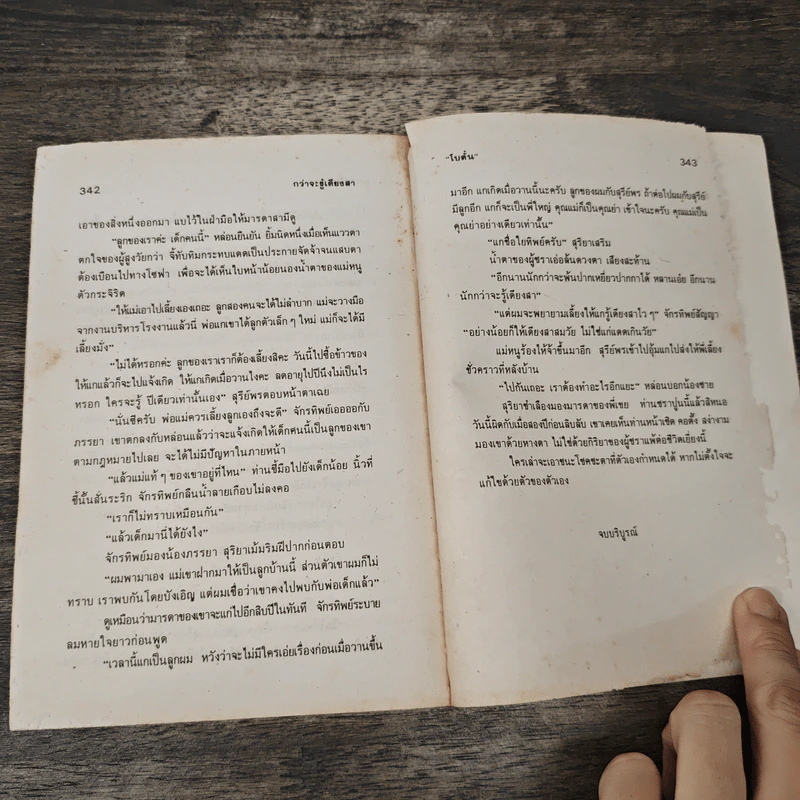 342
กว่าจะรู้เดียงสา
เอาของสิ่งหนึ่งออกมา แบไว้ในฝ่ามือให้มารดาสามีดู
“ลูกของเราค่ะ เด็กคนนี้” หล่อนยืนยัน ยิ้มนิดหนึ่งเมื่อเห็นแววตา
ตกใจของผู้สูงวัยกว่า จี้ทับทิมกระทบแดดเป็นประกายจัดจ้าจนแสบตา
ต้องเบือนไปทางโซฟา เพื่อจะได้เห็นใบหน้าน้อยนองน้ำตาของแม่หนู
ตัวกระจิริด
“ให้แม่เอาไปเลี้ยงเองเถอะ ลูกสองคนจะได้ไม่ลำบาก แม่จะวางมือ
จากงานบริหารโรงงานแล้วนี่ พ่อแกเขาได้ลูกตัวเล็ก ๆ ใหม่ แม่ก็จะได้มี
เลี้ยงมั่ง”
“ไม่ได้หรอกค่ะ ลูกของเราเราก็ต้องเลี้ยงสิคะ วันนี้ไปซื้อข้าวของ
ให้แกแล้วก็จะไปแจ้งเกิด ให้แกเกิดเมื่อวานไงคะ ลดอายุไปปีนึงไม่เป็นไร
หรอก ใครจะรู้ ปีเดียวเท่านั้นเอง” สุรีย์พรตอบหน้าตาเฉย
“นั่นซีครับ พ่อแม่ควรเลี้ยงลูกเองถึงจะดี” จักรทิพย์เออออกับ
ภรรยา เขาตกลงกับหล่อนแล้วว่าจะแจ้งเกิดให้เด็กคนนี้เป็นลูกของเขา
ตามกฎหมายไปเลย จะได้ไม่มีปัญหาในภายหน้า
“แล้วแม่แท้ ๆ ของเขาอยู่ที่ไหน” ท่านชี้มือไปยังเด็กน้อย นิ้วที่
ชี้นั้นสั่นระริก จักรทิพย์กลืนน้ำลายเกือบไม่ลงคอ
“เราก็ไม่ทราบเหมือนกัน”
“แล้วเด็กมานี่ได้ยังไง”
จักรทิพย์มองน้องภรรยา สุริยาเม้มริมฝีปากก่อนตอบ
“ผมพามาเอง แม่เขาฝากมาให้เป็นลูกบ้านนี้ ส่วนตัวเขาผมก็ไม่
ทราบ เราพบกันโดยบังเอิญ แต่ผมเชื่อว่าเขาคงไปพบกับพ่อเด็กแล้ว”
ดูเหมือนว่ามารดาของเขาจะแก่ไปอีกสิบปีในทันที จักรทิพย์ระบาย
ลมหายใจยาวก่อนพูด
“เวลานี้แกเป็นลูกผม หวังว่าจะไม่มีใครเอ่ยเรื่องก่อนเมื่อวานขึ้น
“โบตั๋น”
343
มาอีก แกเกิดเมื่อวานนี้นะครับ ลูกของผมกับสุรีย์พร ถ้าต่อไปผมกับสุรีย์
มีลูกอีก แกก็จะเป็นพี่ใหญ่ คุณแม่ก็เป็นคุณย่า เข้าใจนะครับ คุณแม่เป็น
คุณย่าอย่างเดียวเท่านั้น”
“แกชื่อใยทิพย์ครับ” สุริยาเสริม
น้ำตาของผู้ชราเอ่อล้นดวงตา เสียงสะท้าน
“อีกนานนักกว่าจะพ้นปากเหยี่ยวปากกาได้ หลานเอ๋ย อีกนาน
นักกว่าจะรู้เดียงสา”
“แต่ผมจะพยายามเลี้ยงให้แกรู้เดียงสาไว ๆ” จักรทิพย์สัญญา
“อย่างน้อยก็ให้เดียงสาสมวัย ไม่ใช่แก่แดดเกินวัย”
แม่หนูร้องไห้จ้าขึ้นมาอีก สุรีย์พรเข้าไปอุ้มแกไปส่งให้พี่เลี้ยง
ชั่วคราวที่หลังบ้าน
“ไปกันเถอะ เราต้องทำอะไรอีกแยะ” หล่อนบอกน้องชาย
สุริยาชำเลืองมองมารดาของพี่เขย ท่านชราปูนนี้แล้วสิหนอ
วันนี้ผิดกับเมื่อสองปีก่อนลิบลับ เขาเคยเห็นท่านหน้าเชิด คอตั้ง สง่างาม
มองเขาด้วยหางตา ไม่ใช่ด้วยกิริยาของผู้ชราแพ้ต่อชีวิตเยี่ยงนี้
ใครเล่าจะเอาชนะโชคชะตาที่ตัวเองกำหนดได้ หากไม่ตั้งใจจะ
แก้ไขด้วยตัวของตัวเอง
จบบริบูรณ์